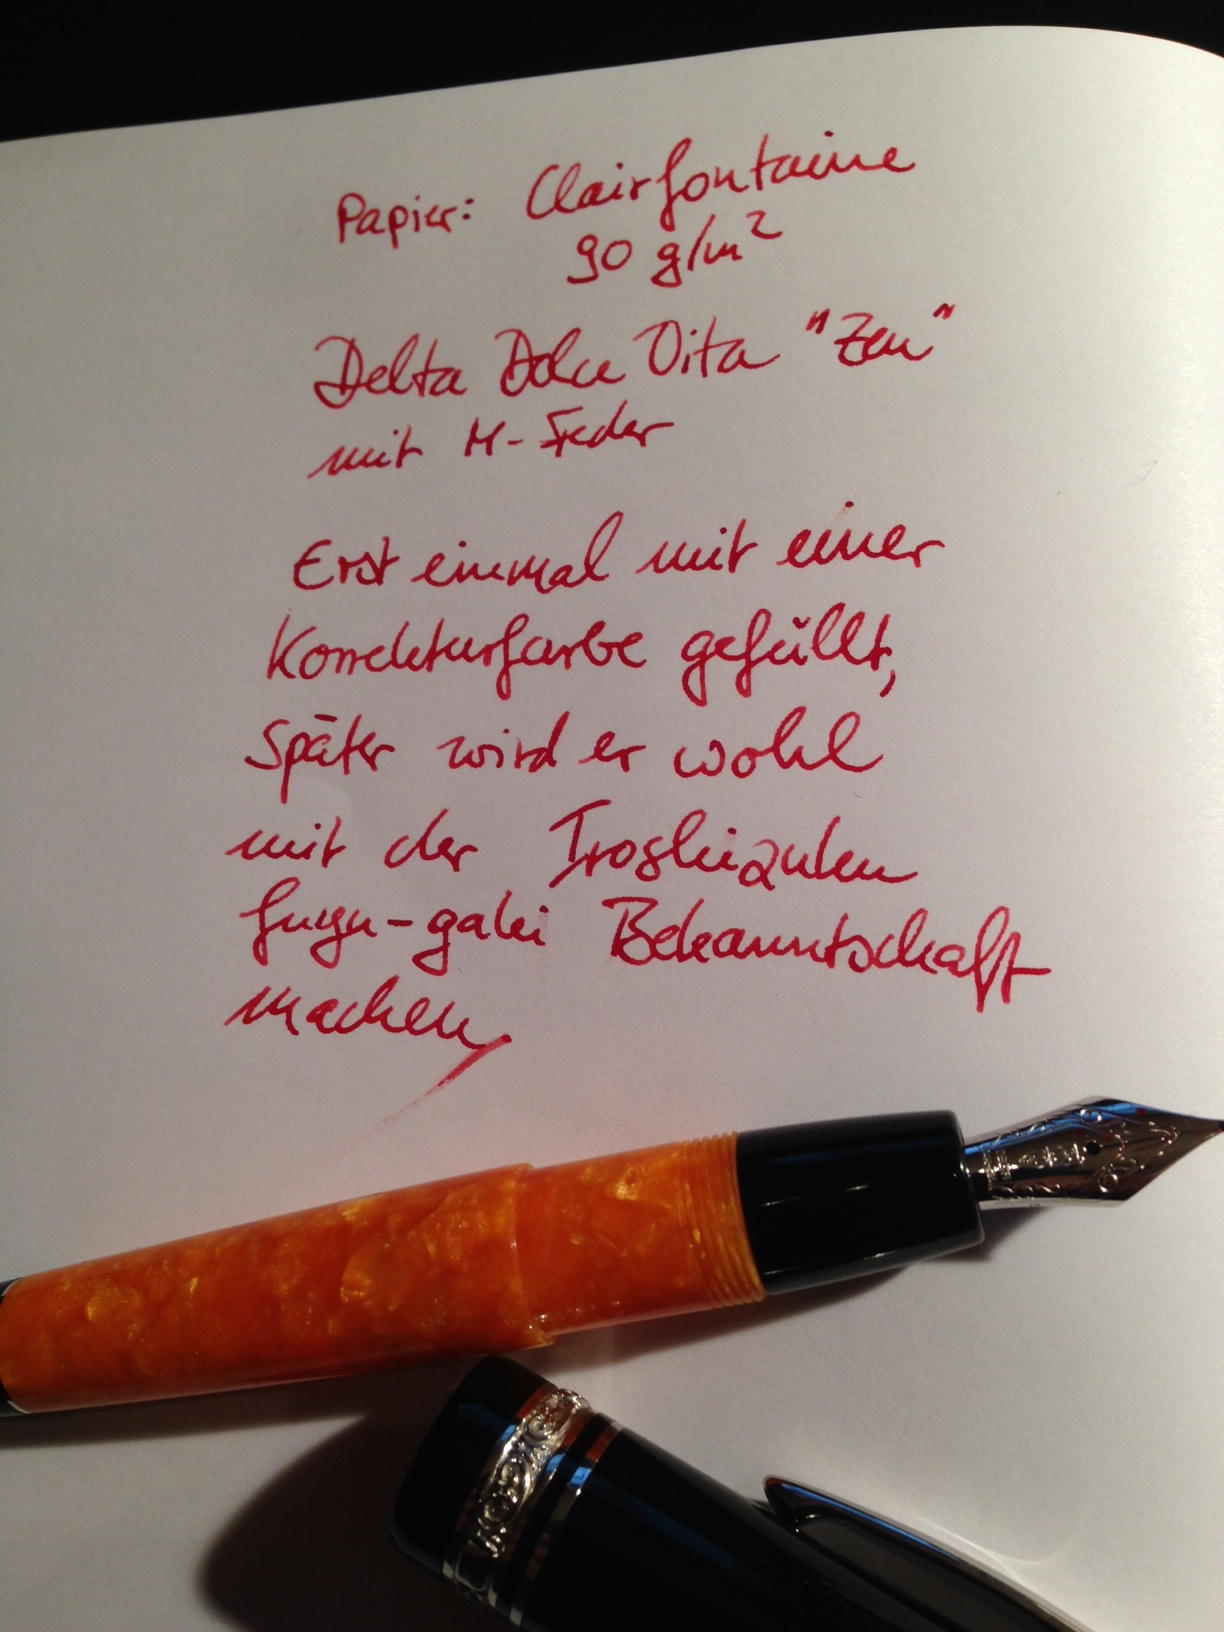 Papier: Clairfontaine
90 g/m²
Delta Dolce Vita "Zen"
mit M-Feder
Erst einmal mit einer
Korrekturfarbe gefüllt,
später wird er wohl
mit der Iroshizuku
fuyu-gaki Bekanntschaft
machen.